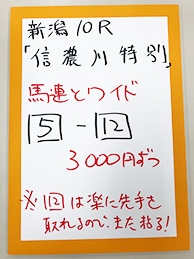 新潟10R
「信濃川特別」
馬連とワイド
5-12
3000円ずつ
※12は楽に先手を
取れるので、また粘る!